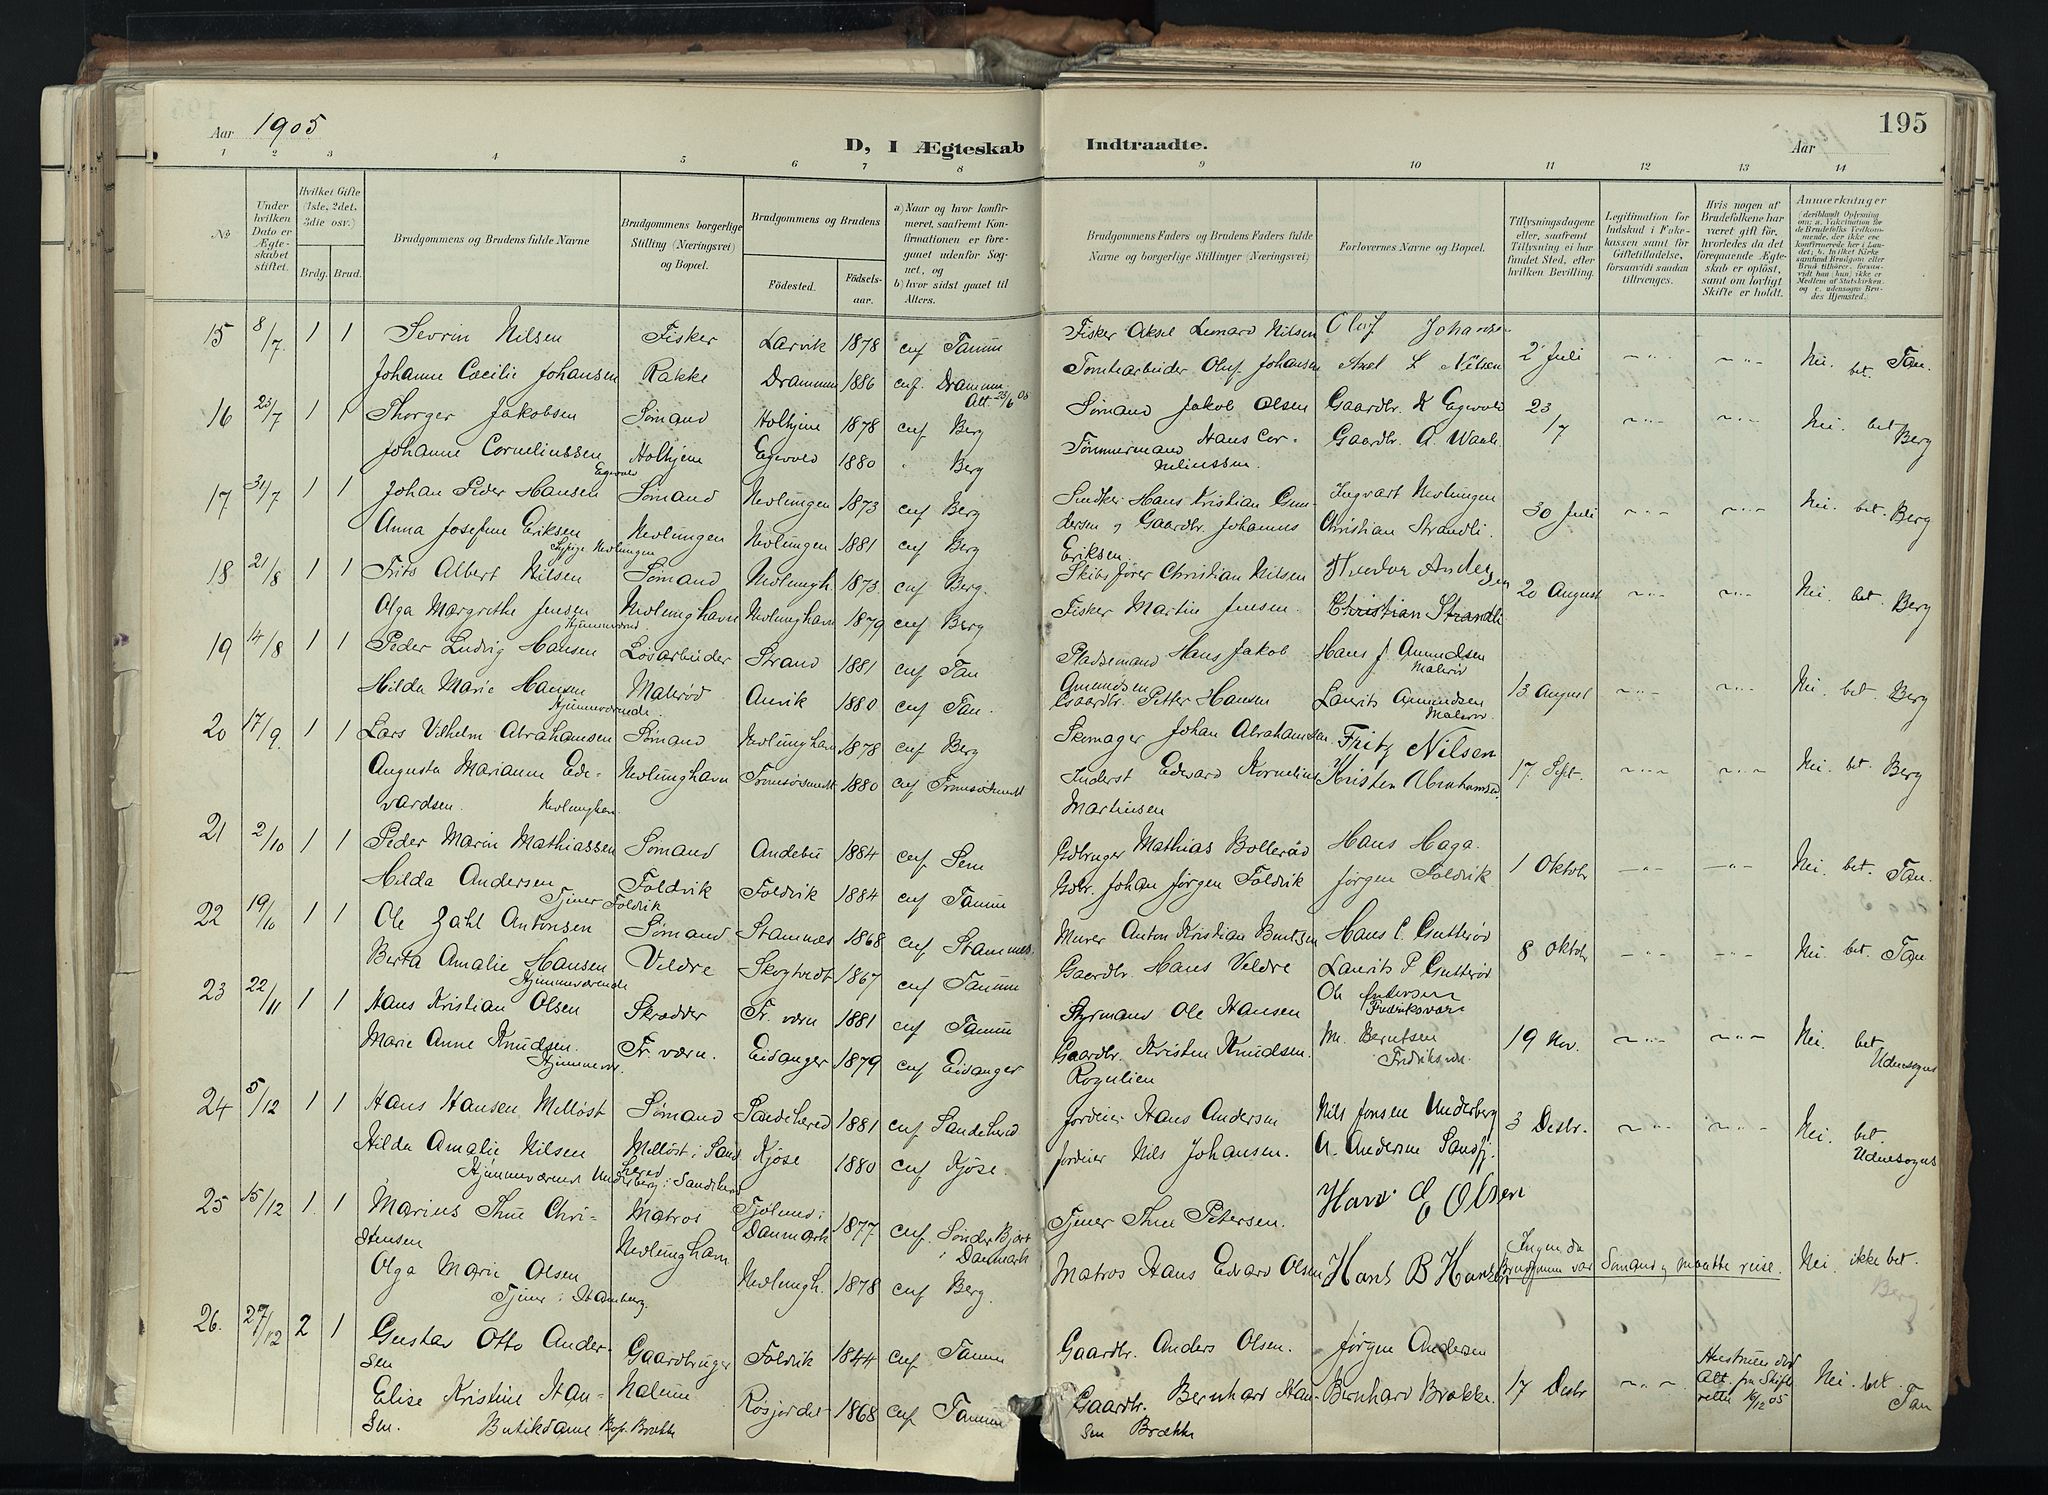 Aar 1905
D, I Ægteskab Indtraadte.
Aar
195
1 2 3 4 5 6 7 8 9 10 11 12 13 14
№
Under hvilken Dato er Ægteskabet stiftet.
Hvilket Gifte (1ste, 2det, 3die osv.)
Brdg. Brud.
Brudgommens og Brudens fulde Navne
Brudgommens borgerlige Stilling (Næringsvei) og Bopæl.
Brudgommens og Brudens
Fødested. Fødselsaar.
a) Naar og hvor konfirmeret, saafremt Konfirmationen er foregaaet udenfor Sognet, og
b) hvor sidst gaaet til Alters.
Brudgommens Faders og Brudens Faders fulde Navne og borgerlige Stillinger (Næringsvei)
Forlovernes Navne og Bopæl.
Tillysningsdagene eller, saafremt Tillysning ei har fundet Sted, efter hvilken Bevilling.
Legitimation for Indskud i Enkekassen samt for Giftetilladelse, forsaavidt saadan tiltrænges.
Hvis nogen af Brudefolkene har været gift før, hvorledes da det foregaaende Ægteskab er opløst, samt om lovligt Skifte er holdt.
Anmærkninger
15 8/7 1 1 Sevrin Nilsen Fisker Larvik 1878 cnf Tanum Fisker Aksel Leonard Nilsen Oluf Johansen 2 Juli Nei. bet. Tan.
Johanne Cæcilie Johansen Rakke Drammen 1886 cnf. Drammen Tomtearbeider Oluf Johansen Axel L Nilsen
Att. 23/6 05
16 23/7 1 1 Thorger Jakobsen Sømand Holhjem 1878 cnf Berg Sømand Jakob Olsen Gaardbr. K Egevold 23/7 Nei. bet Berg
Johanne Corneliussen Holhjem Egevold 1880 " Berg Tømmermand Hans Corneliussen. Gaardbr. A.
Egevold
17 31/7 1 1 Johan Peder Hansen Sømand Nevlungen 1873 cnf Berg Hans Kristian Gun- Ingvart Nevlungen 30 Juli Nei. bet. Berg
Anna Josefine Eriksen Nevlungen Nevlungen 1881 cnf Berg dersen og Gaardbr. Johannes Christian Strandli.
Sypige Nevlungen Eriksen.
18. 21/8 1 1 Frits Albert Nilsen Sømand Nevlungh. 1873. cnf Berg. Skibsfører Christian Nilsen Andersen 20 August Nei bet. Berg
Olga Margrethe Jensen Nevlunghavn Nevlunghavn 1879 cnf Berg Fisker Martin Jensen. Christian Strandli
Hjemmeværend
19 14/8 1 1 Peder Ludvig Hansen Losarbeider Strand 1881 cnf Tan Pladsemand Hans Jakob Hans J. Amundsen
Malerød
Hilda Marie Hansen Malerød Anvik 1880 cnf Tan. Amundsen Gaardbr. Petter Hansen Laurits Amundsen 13 August Nei. bet. Berg
Hjemmeværende. Malerød.
20 17/9. 1 1 Lars Vilhelm Abrahamsen Sømand Nevlunghavn 1878 cnf Berg Skomager Johan Abrahamsen Fritz Nilsen
Augusta Marianne Ede- Nevlunghavn Tromsøsundet 1880 cnf Tromsøsundet Inderst Edvard Kornelius Kristen Abrahamsen. 17. Sept. Nei. bet. Berg
vardsen. Nevlunghavn Martinsen
21 2/10 1 1 Peder Marin Mathiassen Sømand Andebu 1884 cnf. Sem Gdbruger Mathias Bollerød Hans Haga. 1 Oktobr Nei. bet. Tan.
Hilda Andersen Foldvik Foldvik 1884 cnf Tanum Gdbr. Johan Jørgen Foldvik Jørgen Foldvik
Tjener Foldvik
22 19/10 1 1 Ole Zahl Antonsen Sømand Stamnes 1868 cnf Stamnes. Murer Anton Kristian Hans C. Gutterød 8 Oktobr Nei bet. Tan
Berta Amalie Hansen Veldre Skogtvedt 1867 cnf Tanum Gaardbr. Hans Veldre Laurits P. Gutterød
Hjemmeværende
23 22/11 1 1 Hans Kristian Olsen Skrædder Fr. værn 1881 cnf Tanum Styrmand Ole Hansen Ole Andersen
Fredriksværn
Marie Anne Knudsen. Fr. værn. Eidanger 1879 cnf Eidanger Gaardbr. Kristen Knudsen. M. Berntsen 19 Nov. Nei. bet Udensogns
Hjemmevær. Rognlien Fredriksvrn.
24 5/12 1 1 Hans Hansen Melløst Sømand Sandeherred 1881 cnf Sandeherred Jordeier Hans Andersen Nils Jensen Underberg 3 Desbr. Nei. bet. Udensogns
Hilda Amalie Nilsen Melløst i Sandeherred Kjose 1880 cnf Kjose. Jordeier Nils Johansen. A. Andersen Sandfj.
Hjemmeværend Underberg i Sandeherred
25 15/12 1. 1 Marius Thue Chri- Matros i Danmark 1877 cnf. Sønder Bjert Tjener Thue Petersen. Hans E Olsen
stensen Nevlunghavn i Danmark
Olga Marie Olsen Nevlungh. 1878 cnf Berg. Matros Hans Edvard Olsen Hans B Hansen Ingen da Brudgommen var Sømand og maatte reise. Nei ikke bet. Berg
Tjener i Hamburg.
26. 27/12 2 1 Gustav Otto Ander- Gaardbruger Foldvik 1844 cnf Tanum Gaardbr. Anders Olsen. Jørgen Andersen
sen Nalum Hustruen død
Elise Kristine Han- Rosjordet 1868 cnf Tanum Gaardbr. Bernhard Han- Bernhard Brække. 17 Desbr Att. fra Skifte- Nei. bet. Tan
sen. Butikdame Bop. Brække sen Brække retten 16/12 05